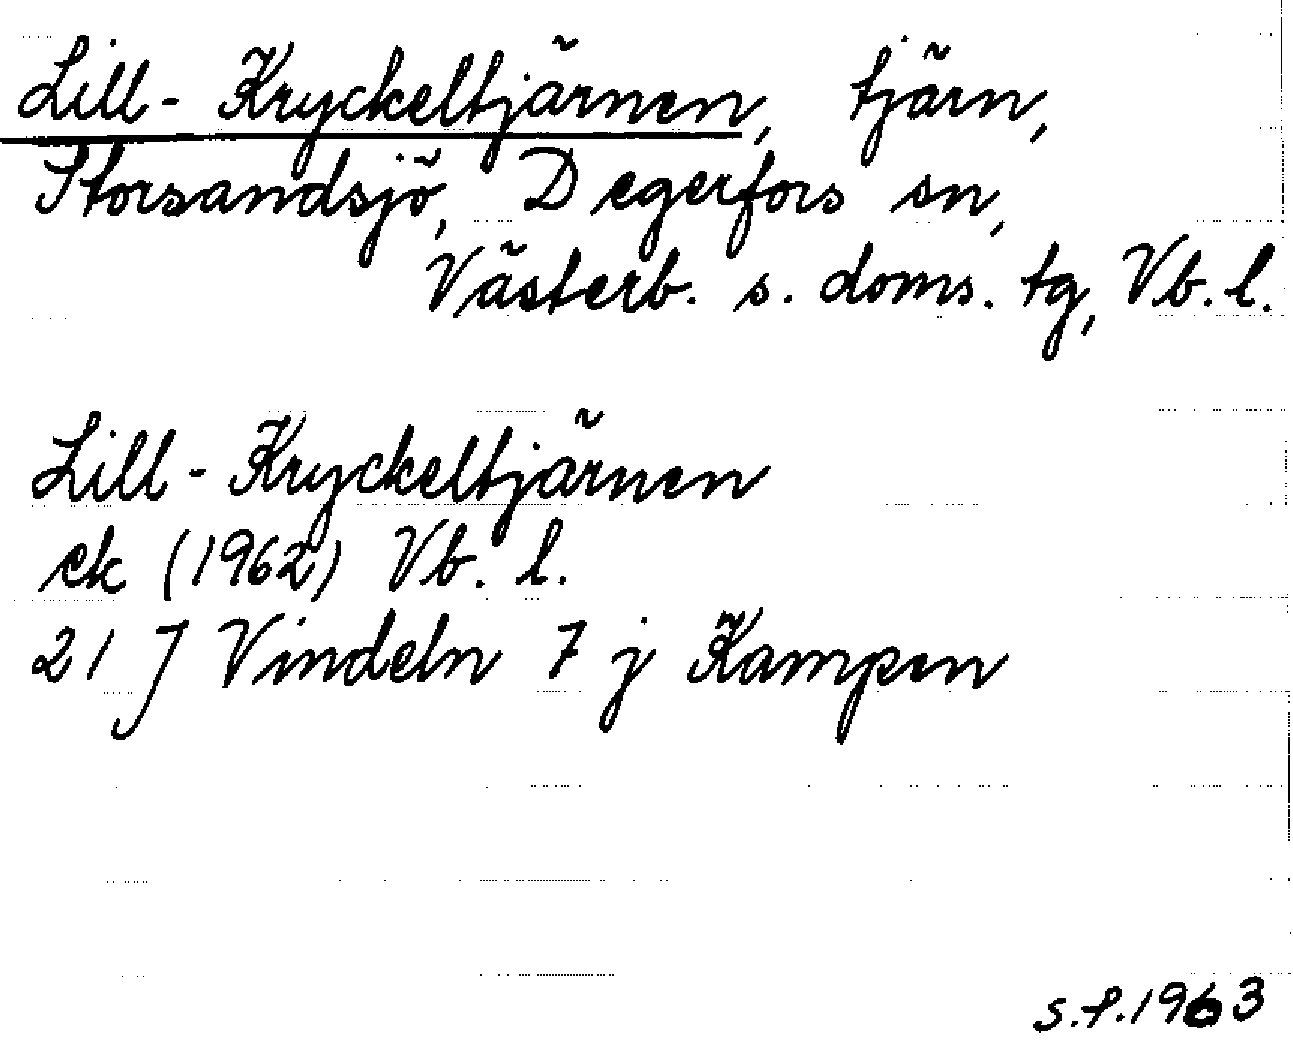 Lill-Kryckeltjärnen, tjärn,
Storsandsjö, Degerfors sn,
Västerb. s. doms. tg, Vb. l.
Lill-Kryckeltjärnen
ek (1962) Vb. l.
21 J Vindeln 7 j Kampen
s.f. 1963